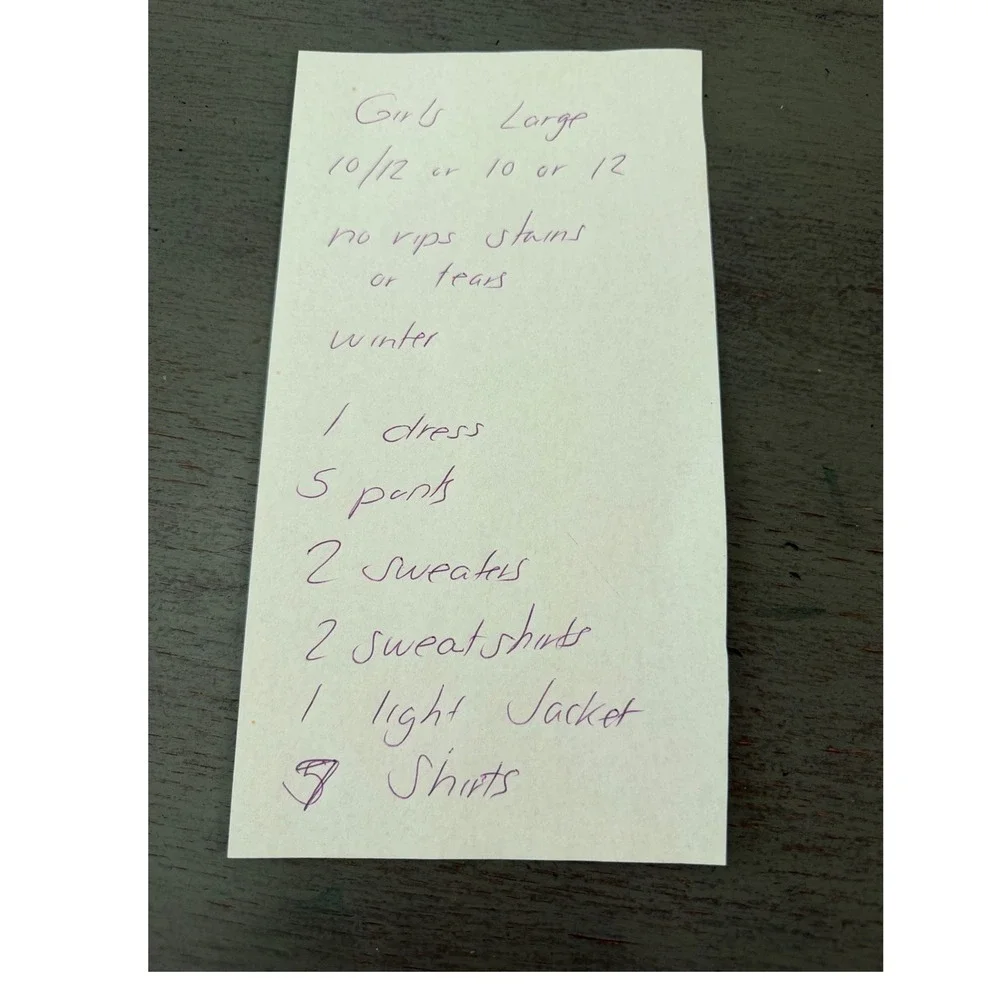 Girls Large
10/12 or 10 or 12
no rips stains
or tears
winter
1 dress
5 pants
2 sweaters
2 sweatshirts
1 light Jacket
Shirts